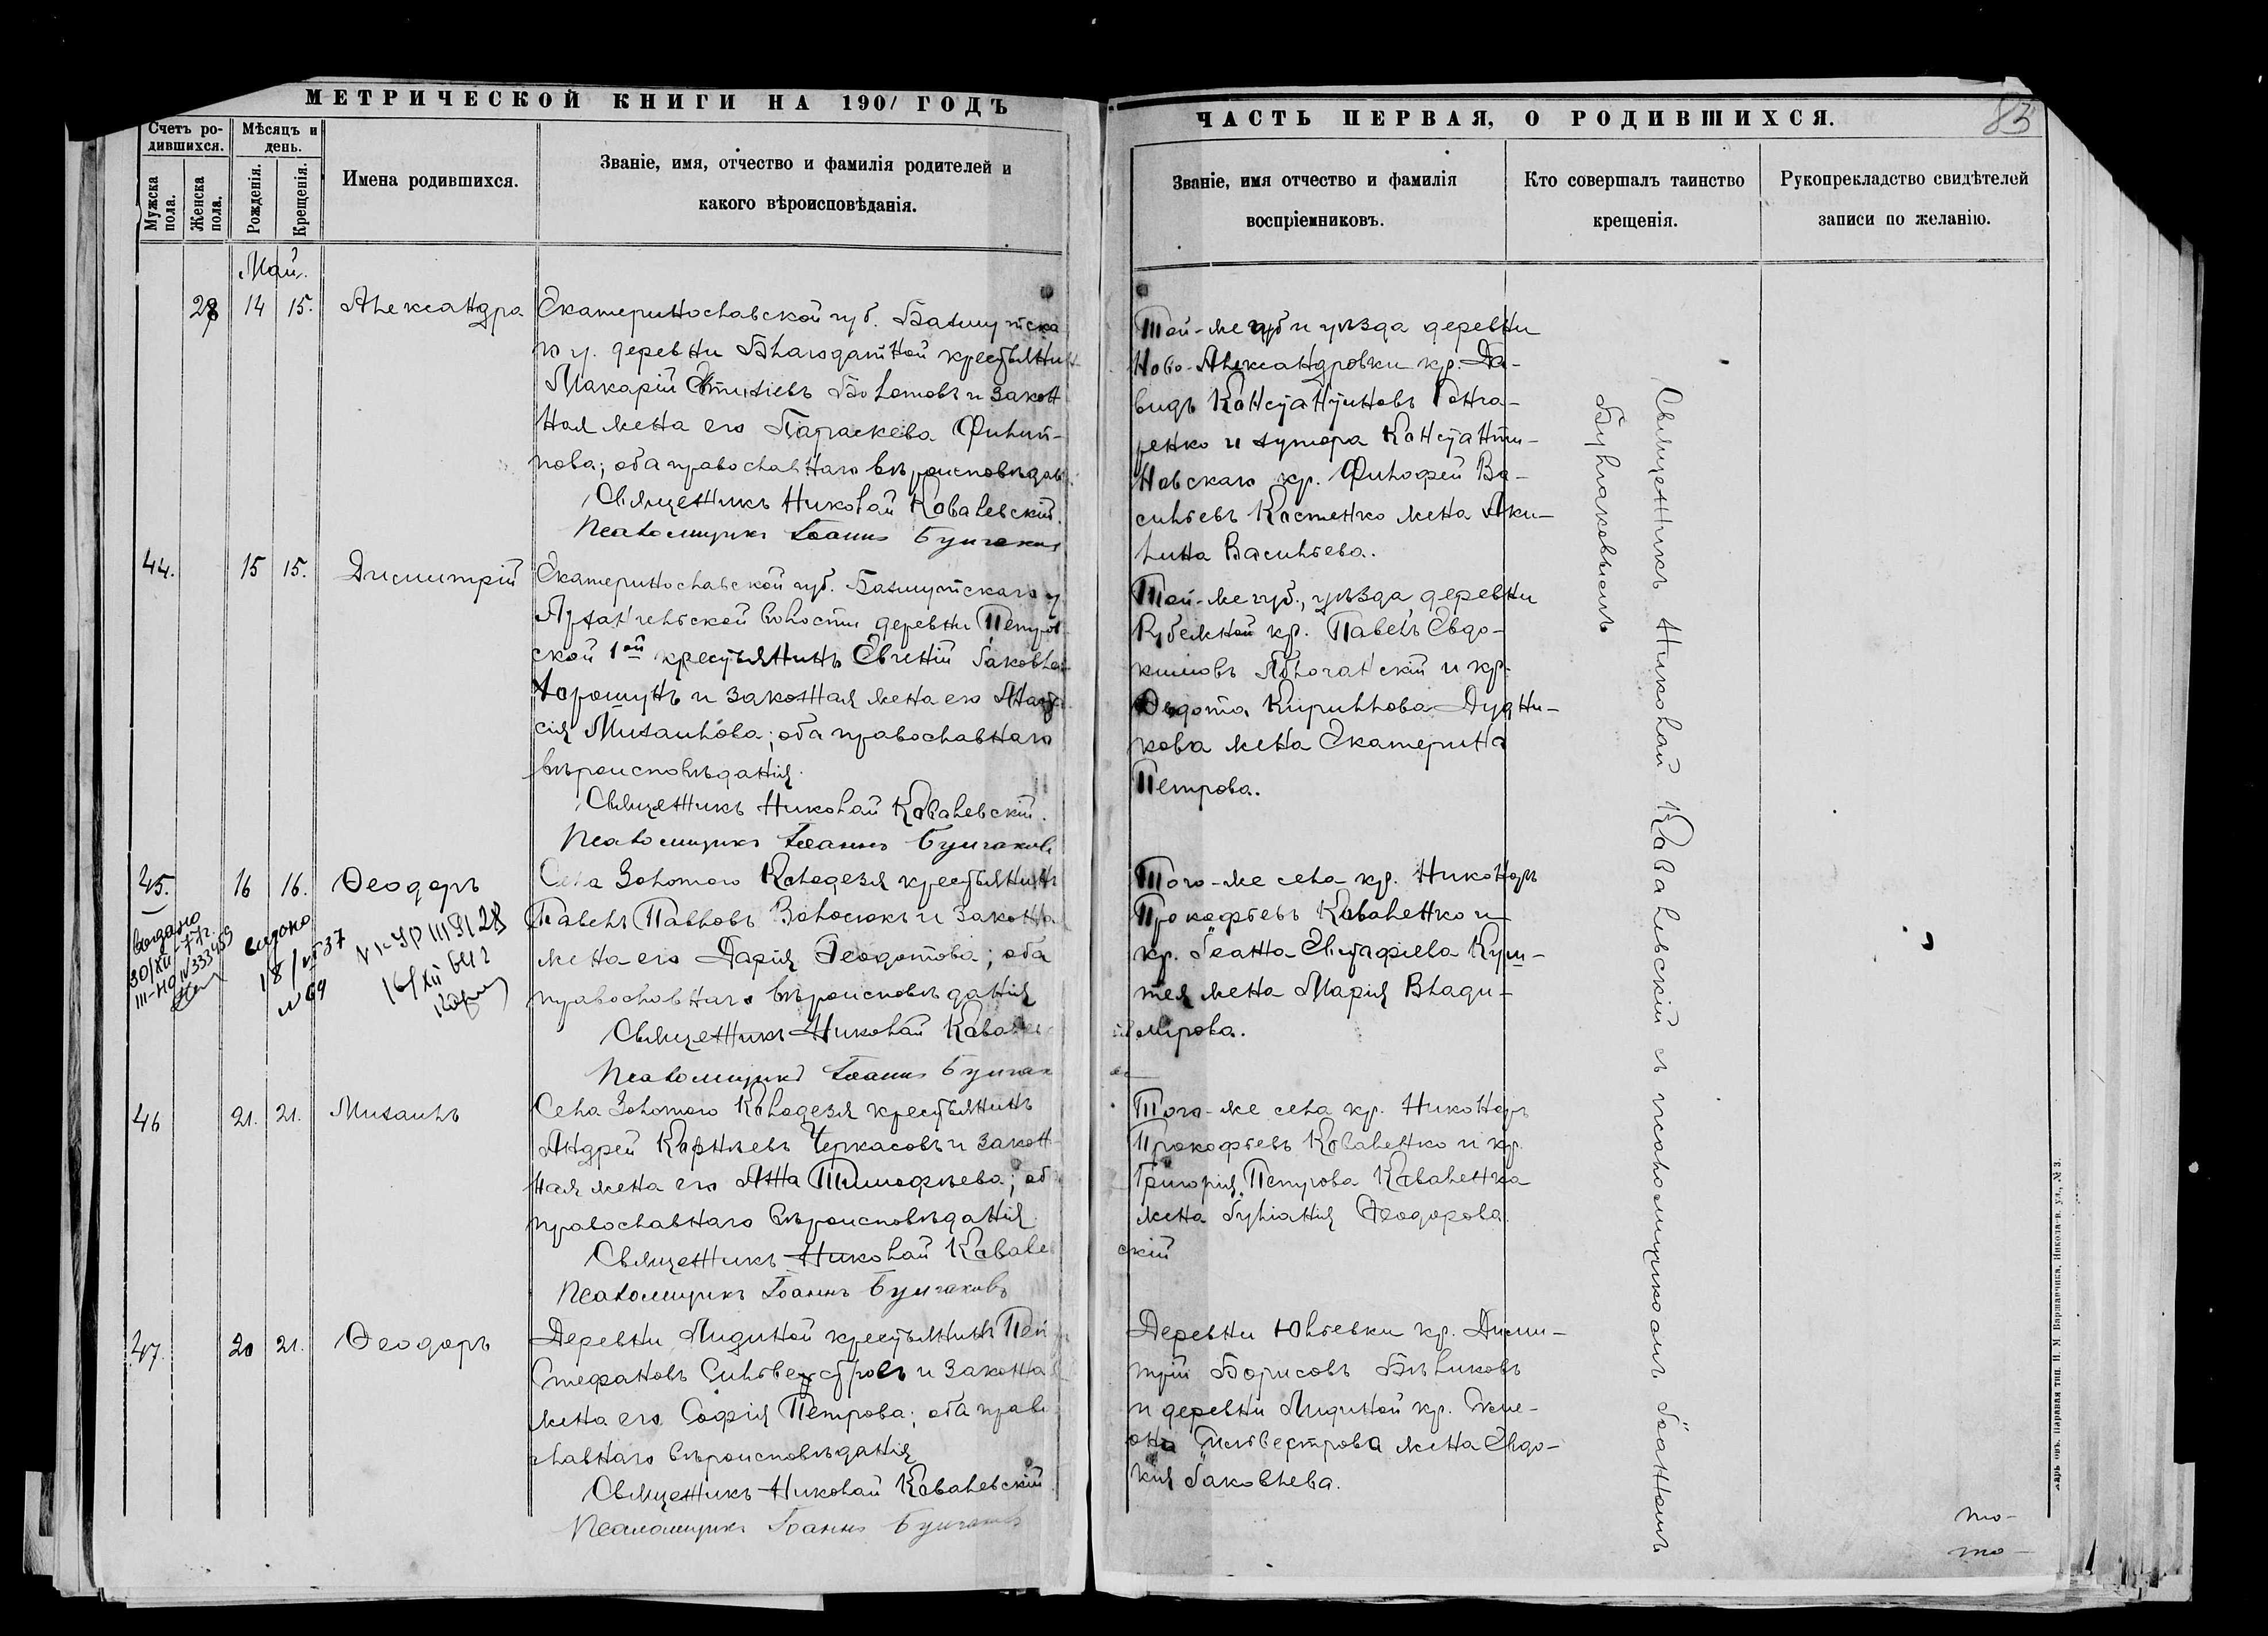 МЕТРИЧЕСКОЙ КНИГИ НА 1901 ГОДЪ
Счетъ ро-
дившихся.
Мѣсяцъ и
день.
Мужска
пола.
Женска
пола.
Рожденія.
Крещенія.
Имена родившихся.
Званіе, имя, отчество и фамилія родителей и
какого вѣроисповѣданія.
Май.
28 14 15. Александра
Екатеринославской губ. Бахмутска
го у. деревни Благодатной крестьянин
Макарій Болотовъ и закон
ная жена его Параскева Филип-
пова; оба православнаго вѣроисповѣдан.
Священникъ Николай Ковалевскій.
Псаломщикъ Іоаннъ Булгаков
44. 15 15. Димитрій
Екатеринославской губ. Бахмутскаго у
волости деревни Петров
ской 1ой крестьянинъ Евгеній Іаковлев
Хорошунъ и законная жена его
сія Михаилова; оба православнаго
вѣроисповѣданія.
Священникъ Николай Ковалевскій.
Псаломщикъ Іоаннъ Булгаковъ
45. 16 16. Ѳеодоръ
Выдано
30/XII-77г.
III-НО №333459
видано
18/VI 37
№ 69
VI-УР III 8128
16/XII
Села Золотого Колодезя крестьянинъ
Павелъ Павловъ Волосюкъ и законна
жена его Дарія Ѳеодотова; оба
православнаго вѣроисповѣданія
Священникъ Николай Ковалев
Псаломщикъ Іоаннъ Булгак
46 21. 21. Михаилъ
Села Золотого Колодезя крестьянинъ
Андрей Корнѣевъ Черкасовъ и закон
ная жена его Анна Тимофѣева; об
православнаго вѣроисповѣданія.
Священникъ Николай Ковалев
Псаломщикъ Іоаннъ Булгаковъ
47. 20 21. Ѳеодоръ
Деревни Лидиной крестьянинъ
Стефановъ Сильвестровъ и законна
жена его Софія Петрова; оба право
славнаго вѣроисповѣданія
Священникъ Николай Ковалевскій
Псаломщикъ Іоаннъ Булгаковъ
ЧАСТЬ ПЕРВАЯ, О РОДИВШИХСЯ.
83
Званіе, имя отчество и фамилія
воспріемниковъ.
Кто совершалъ таинство
крещенія.
Рукоприкладство свидѣтелей
записи по желанію.
Той-же губ и уѣзда деревни
Ново-Александровки кр. Да-
видъ Константиновъ Гонча-
ренко и хутора Константи-
новскаго кр. Филофей Ва-
сильевъ Костенко жена Аки-
лина Васильева.
Той-же губ., уѣзда деревни
Рубежной кр. Павелъ Евдо-
кимовъ и кр.
Ѳедота Кириллова Дудни-
кова жена Екатерина
Петрова.
Того-же села кр. Никоноръ
Прокофьевъ Коваленко и
кр. Іоанна Евстафіева
жена Марія Влади-
мірова.
Того-же села кр. Никоноръ
Прокофьевъ Коваленко и кр.
Григорія Петрова Коваленка
жена Іуліанія Ѳеодорова.
скій
Деревни Юльевки кр. Дими-
трій Борисовъ Бѣликовъ
и деревни Лидиной кр. Симе-
она Сильвестрова жена Евдо-
кія Іаковлева.
Священникъ Николай Ковалевскій съ псаломщикомъ Іоанномъ
Булгаковымъ
то-
то-